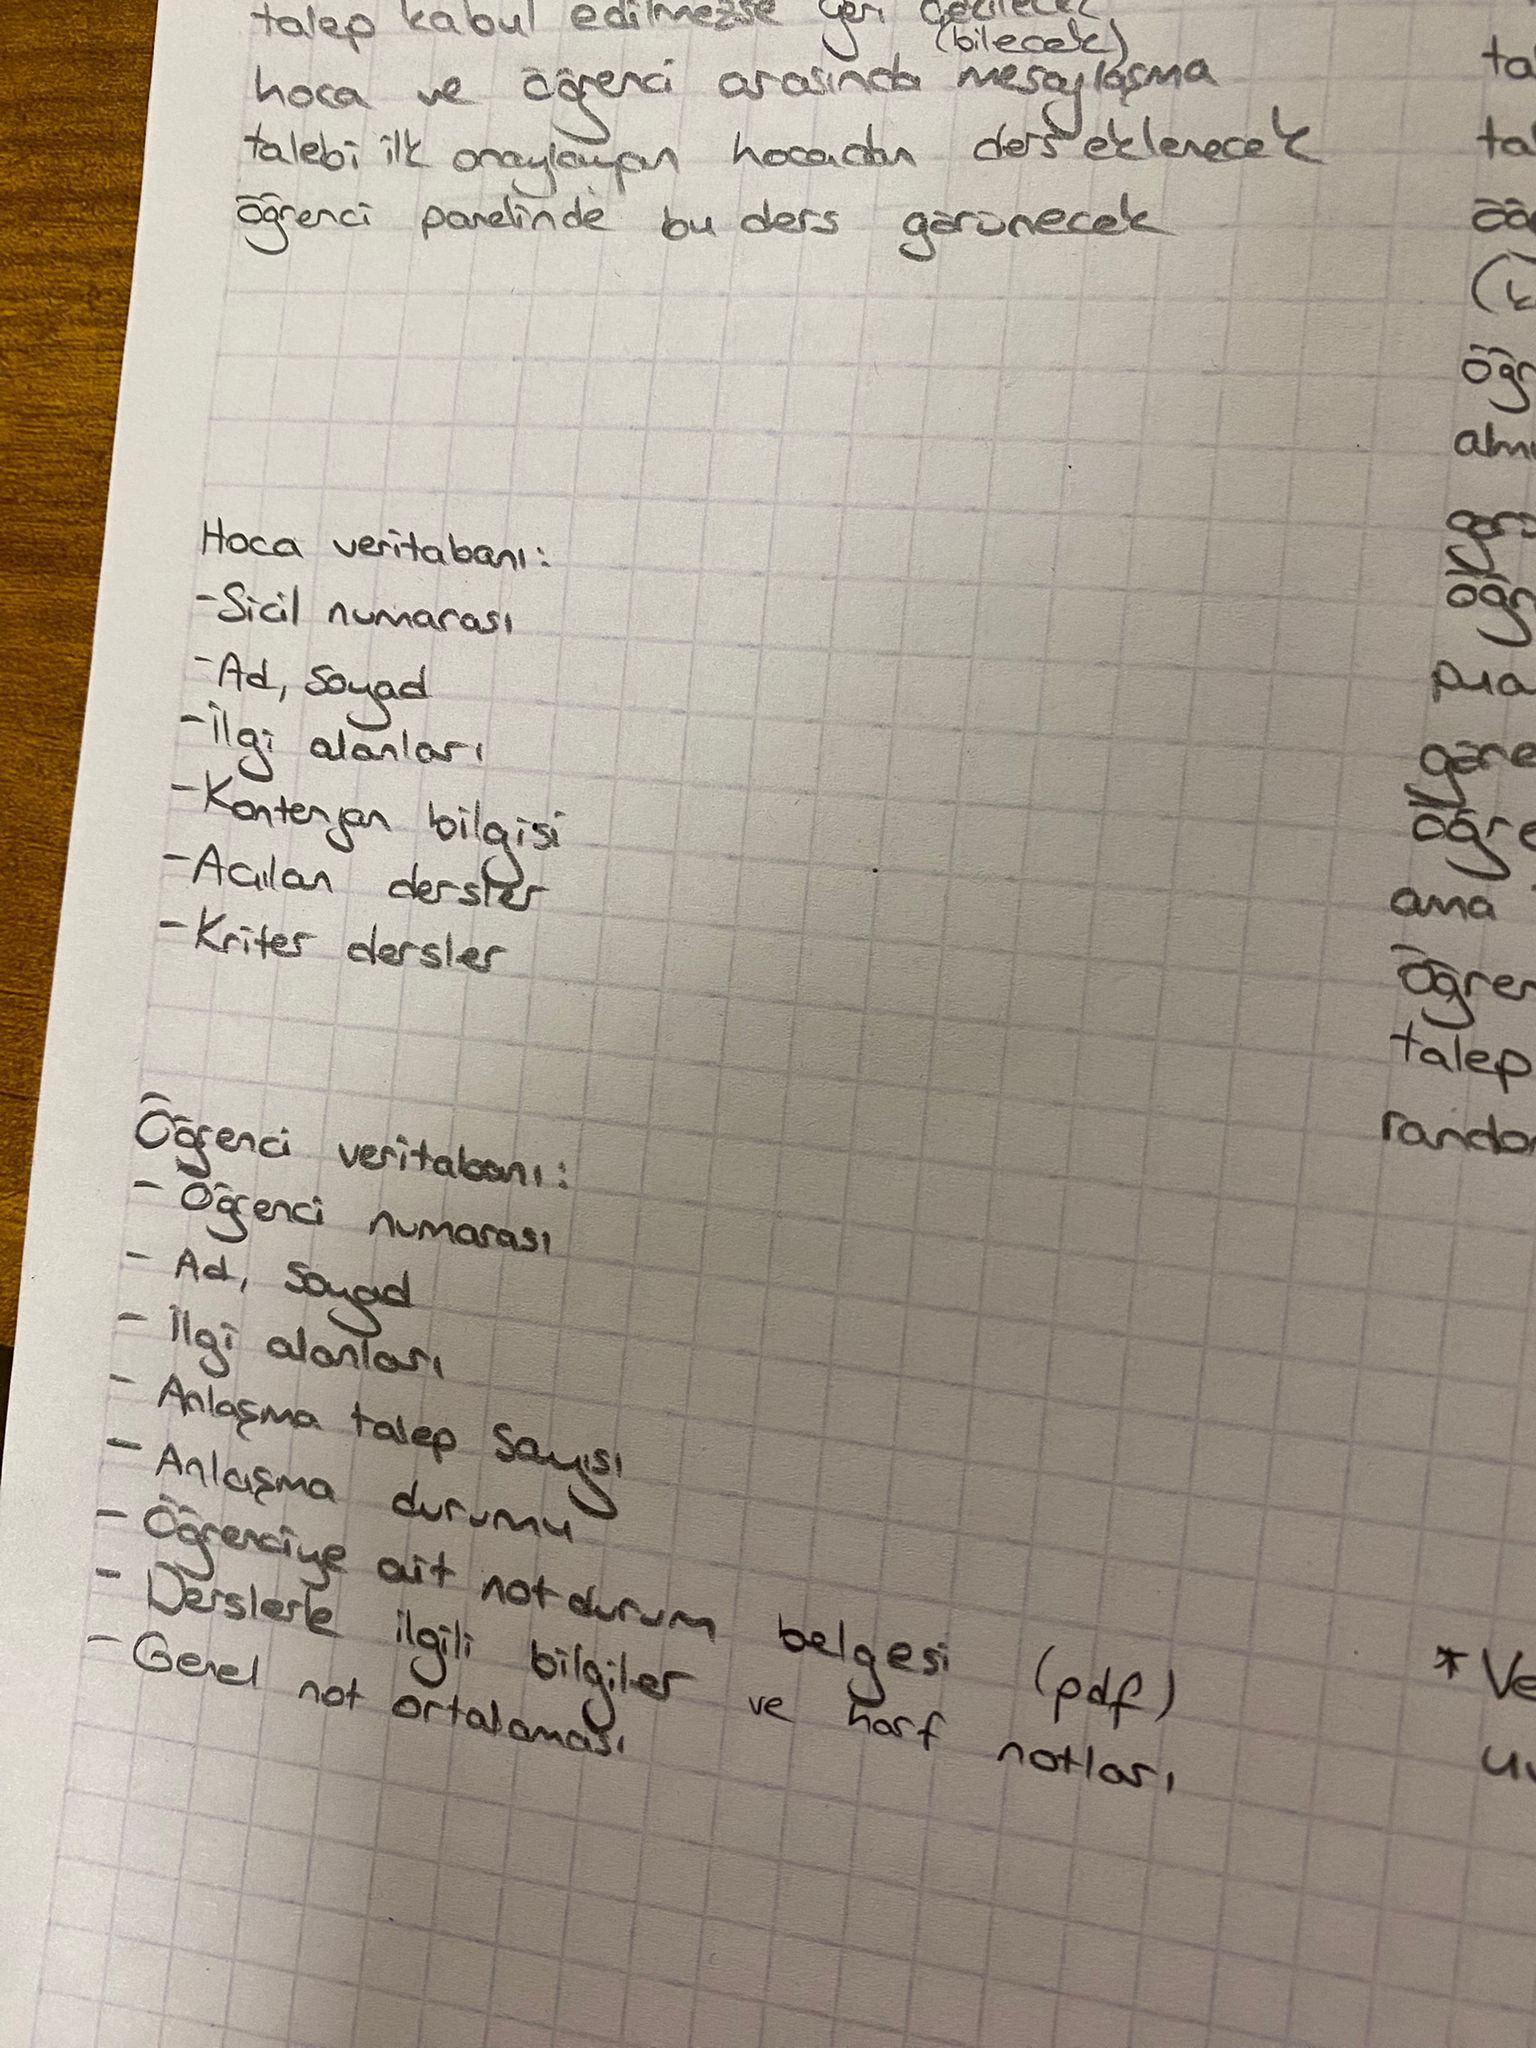 talep kabul edilmezse geri çekilecek
(bilecek)
hoca ve öğrenci arasında mesajlaşma
talebi ilk onaylayan hocadan ders eklenecek
öğrenci panelinde bu ders görünecek
Hoca veritabanı:
-Sicil numarası
-Ad, soyad
-İlgi alanları
-Kontenjan bilgisi
-Açılan dersler
-Kriter dersler
Öğrenci veritabanı:
- Öğrenci numarası
- Ad, soyad
- İlgi alanları
- Anlaşma talep sayısı
- Anlaşma durumu
- Öğrenciye ait not durum belgesi (pdf)
- Derslerle ilgili bilgiler ve harf notları
- Genel not ortalaması
ama
talep